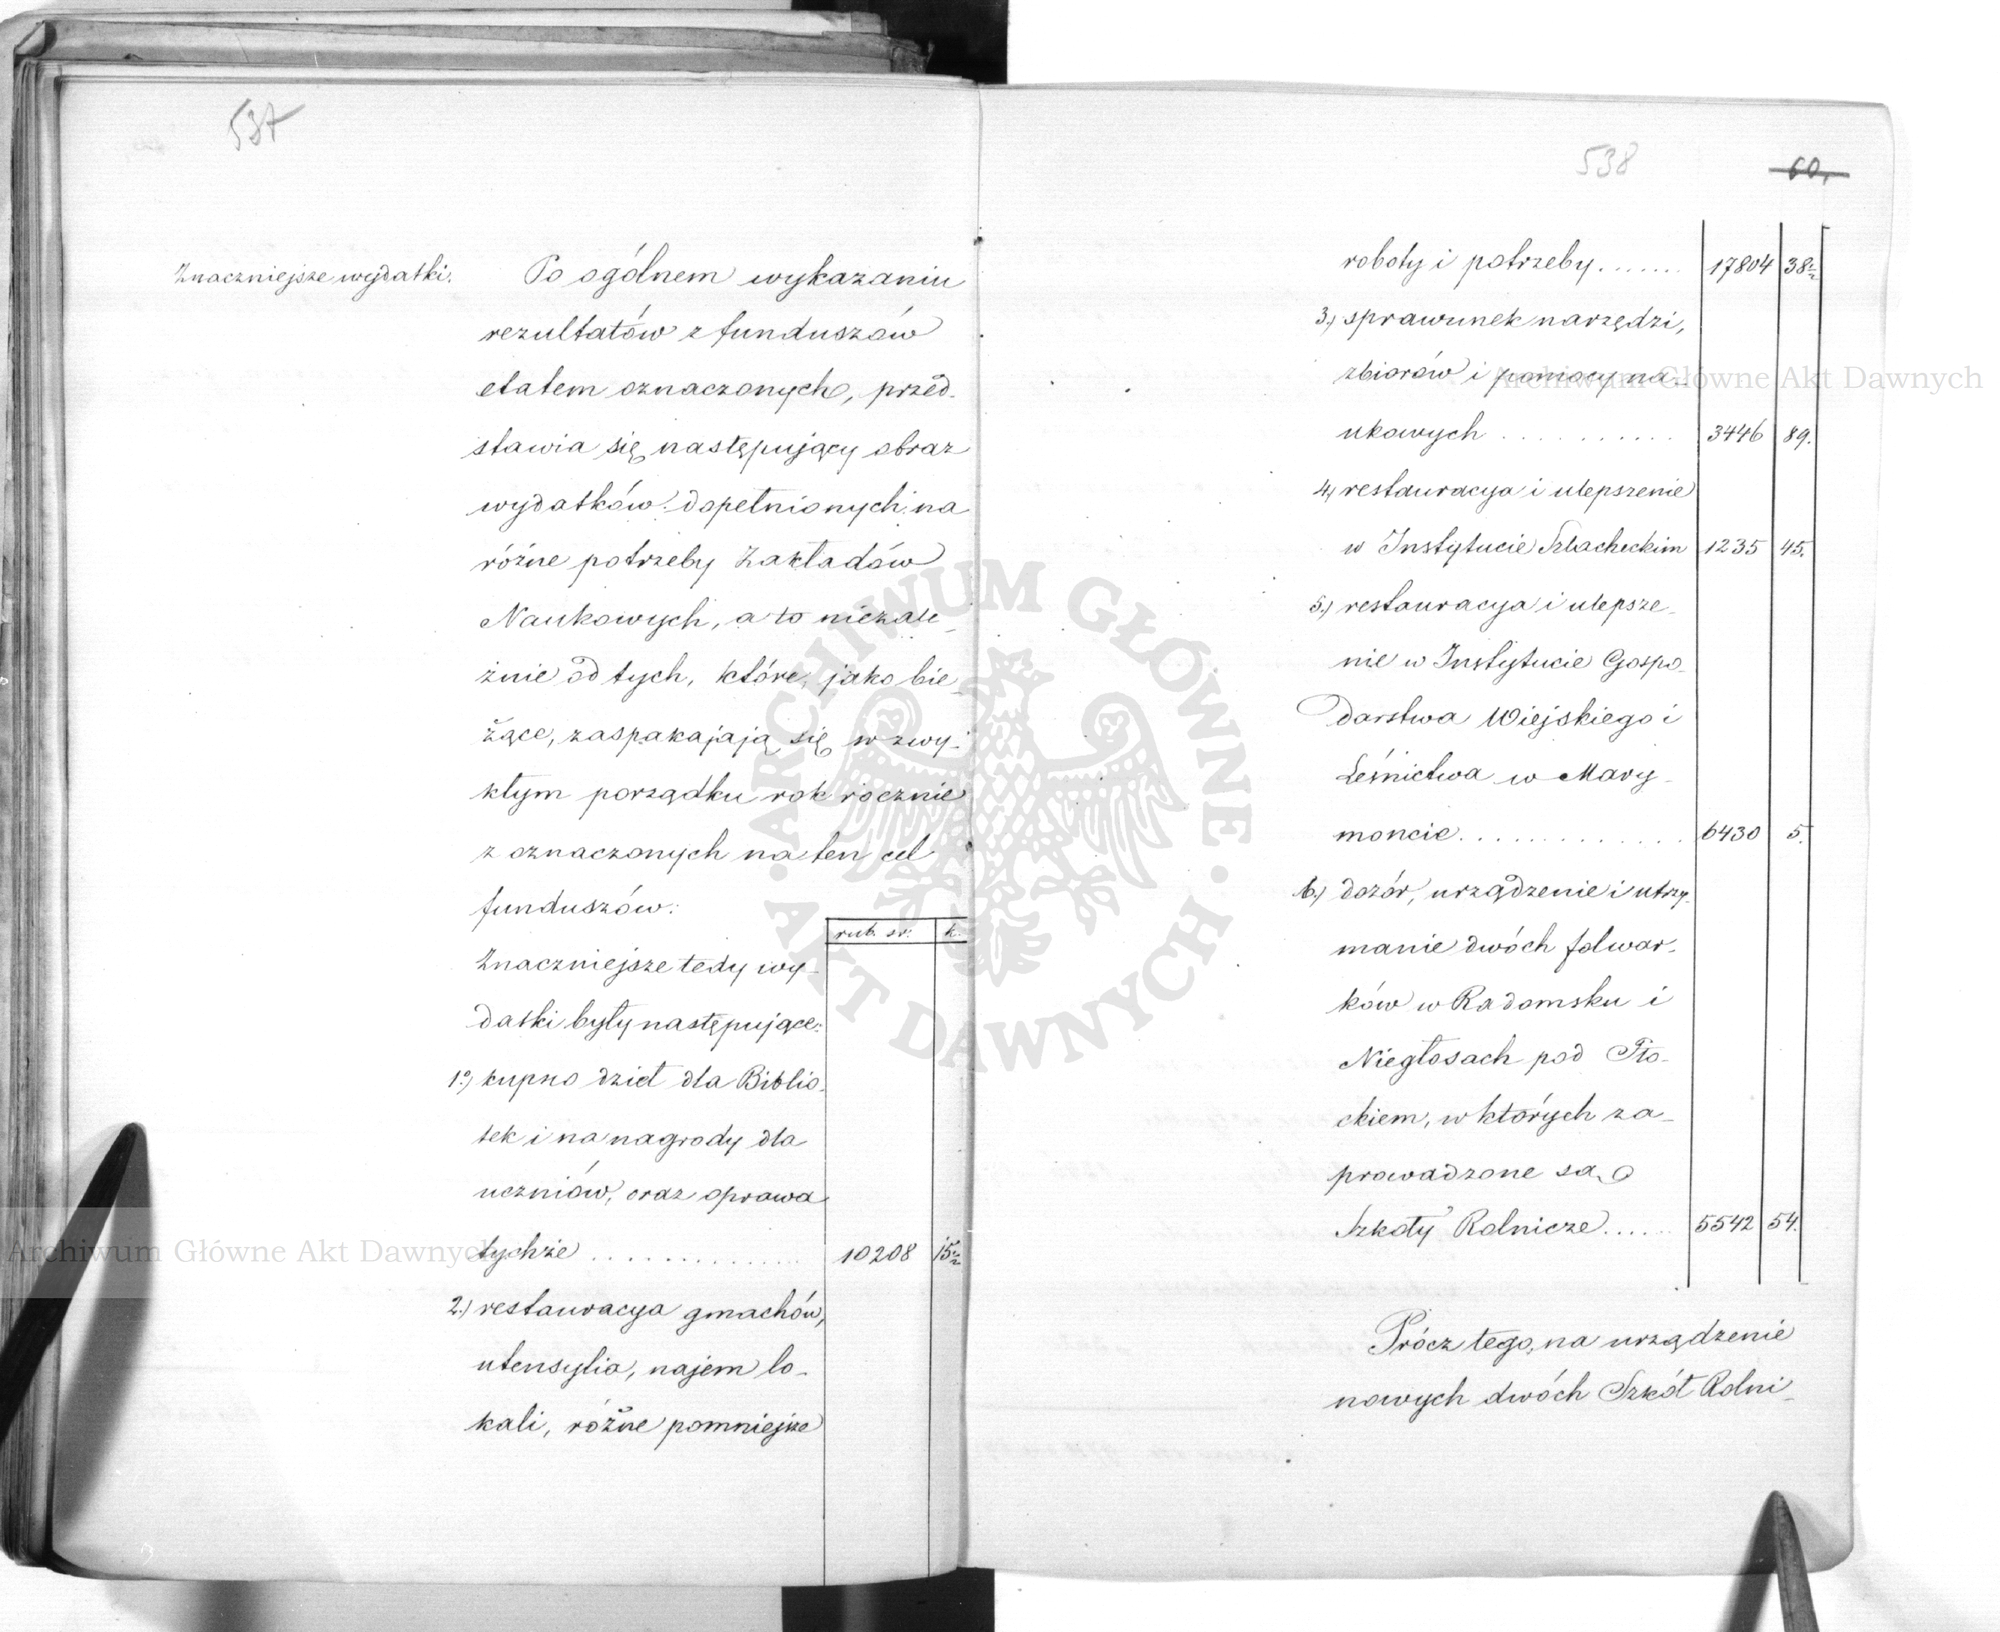 537
Znaczniejsze wydatki.
Po ogólnem wykazaniu
rezultatów z funduszów
etatem oznaczonych, przed-
stawia się następujący obraz
wydatków dopełnionych na
różne potrzeby Zakładów
Naukowych, a to niezale-
żnie od tych, które, jako bie-
żące, zaspakajają się w zwy-
kłym porządku rok rocznie
z oznaczonych na ten cel
funduszów:
rub. sr: k.
Znaczniejsze tedy wy-
datki były następujące:
1.) kupno dzieł dla Biblio-
tek i na nagrody dla
uczniów, oraz oprawa
tychże . . . . . . . . . . . . . 10208 15½
2.) restauracya gmachów,
utensylia, najem lo-
kali, różne pomniejsze
538
60,
roboty i potrzeby . . . . . . . 17804 38½
3.) sprawunek narzędzi,
zbiorów i pomocy na-
ukowych . . . . . . . . . . 3446 89.
4.) restauracya i ulepszenie
w Instytucie Szlacheckim 1235 45.
5.) restauracya i ulepsze-
nie w Instytucie Gospo-
darstwa Wiejskiego i
Leśnictwa w Mary-
moncie . . . . . . . . . . . . . 6430 5.
6.) dozór, urządzenie i utrzy-
manie dwóch folwar-
ków w Radomsku i
Niegłosach pod Pło-
ckiem, w których za-
prowadzone są
Szkoły Rolnicze . . . . . . 5542 54.
Prócz tego, na urządzenie
nowych dwóch Szkół Rolni-
Archiwum Główne Akt Dawnych
Archiwum Główne Akt Dawnych
ARCHIWUM GŁÓWNE AKT DAWNYCH